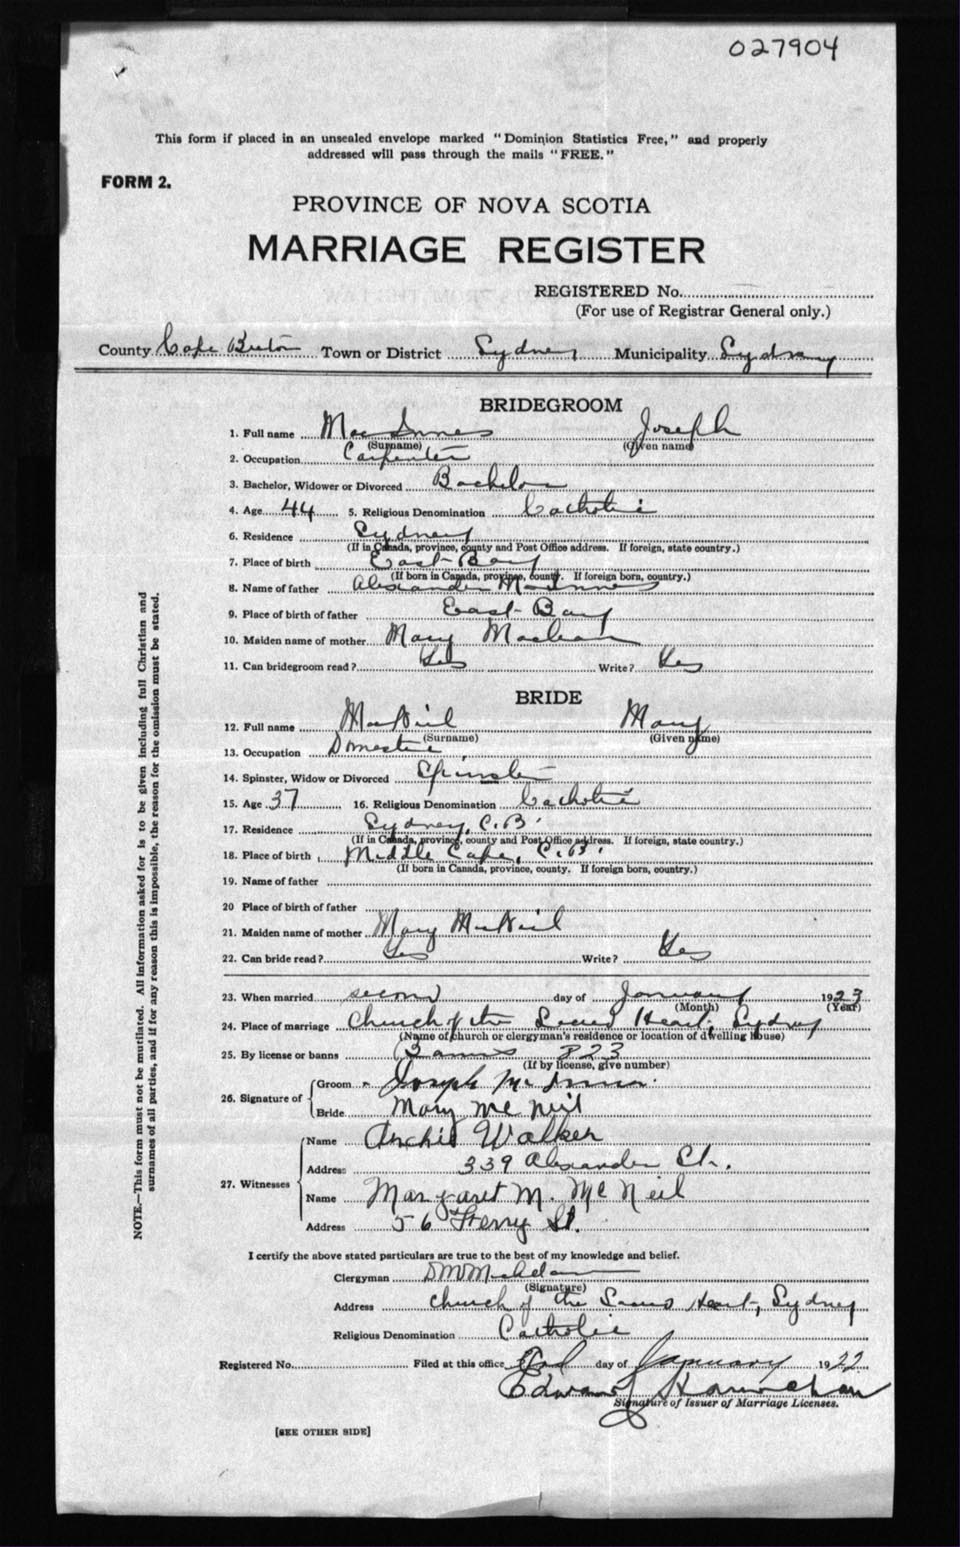 027904
This form if placed in an unsealed envelope marked "Dominion Statistics Free," and properly
addressed will pass through the mails "FREE."
FORM 2.
PROVINCE OF NOVA SCOTIA
MARRIAGE REGISTER
REGISTERED No.
(For use of Registrar General only.)
County Cape Breton Town or District Sydney Municipality Sydney
BRIDEGROOM
1. Full name MacInnes Joseph
(Surname) (Given name)
2. Occupation Carpenter
3. Bachelor, Widower or Divorced Bachelor
4. Age 44 5. Religious Denomination Catholic
6. Residence Sydney
(If in Canada, province, county and Post Office address. If foreign, state country.)
7. Place of birth East Bay
(If born in Canada, province, county. If foreign born, country.)
8. Name of father Alexander MacInnes
9. Place of birth of father East Bay
10. Maiden name of mother Mary Maclean
11. Can bridegroom read? Yes Write? Yes
BRIDE
12. Full name MacNeil Mary
(Surname) (Given name)
13. Occupation Domestic
14. Spinster, Widow or Divorced Spinster
15. Age 37 16. Religious Denomination Catholic
17. Residence Sydney, C.B.
(If in Canada, province, county and Post Office address. If foreign, state country.)
18. Place of birth Middle Cape, C.B.
(If born in Canada, province, county. If foreign born, country.)
19. Name of father
20 Place of birth of father
21. Maiden name of mother Mary MacNeil
22. Can bride read? Yes Write? Yes
23. When married second day of January 1923
(Month) (Year)
24. Place of marriage Church of the Sacred Heart, Sydney
(Name of church or clergyman's residence or location of dwelling house)
25. By license or banns Banns 823
(If by license, give number)
26. Signature of
Groom Joseph McInnis
Bride Mary McNeil
27. Witnesses
Name Archie Walker
Address 339 Alexander St.
Name Margaret M. McNeil
Address 56 Ferry St.
I certify the above stated particulars are true to the best of my knowledge and belief.
Clergyman
(Signature)
Address Church of the Sacred Heart, Sydney
Religious Denomination Catholic
Registered No. Filed at this office day of January 1922
Edward
Signature of Issuer of Marriage Licenses.
[SEE OTHER SIDE]
NOTE.—This form must not be mutilated. All information asked for is to be given including full Christian and
surnames of all parties, and if for any reason this is impossible, the reason for the omission must be stated.